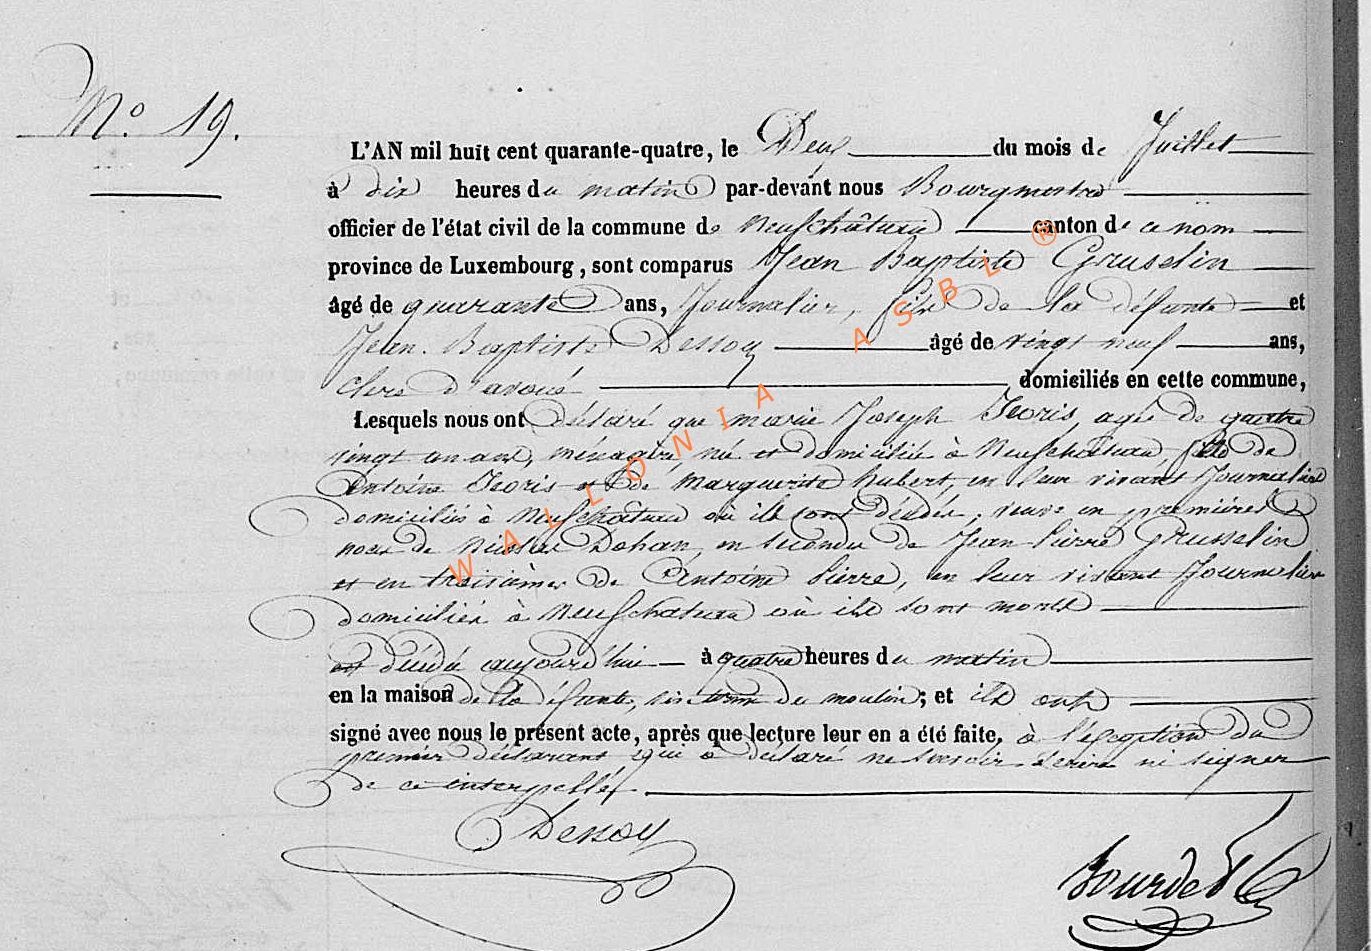 N.° 19.
L'AN mil huit cent quarante-quatre, le Deux du mois de Juillet
à dix heures du matin par-devant nous Bourgmestre
officier de l'état civil de la commune de Neufchâteau canton de ce nom
province de Luxembourg, sont comparus Jean Baptiste Gruselin
âgé de quarante ans, Journalier, fils de la défunte et
Jean-Baptiste Dessoy âgé de vingt neuf ans,
clerc d'avoué domiciliés en cette commune,
Lesquels nous ont déclaré que marie Joseph Jeoris, agée de quatre
vingt un ans, ménagère, née et domiciliée à Neufchâteau, fille de
Antoine Jeoris et de Marguerite hubert, en leur vivant Journaliers
domiciliés à Neufchateau où ils sont décédés, veuve en premières
noces de Nicolas Dohan, en secondes de Jean Pierre Grusselin
et en troisièmes de Antoine Pierre, en leur vivant Journaliers
domiciliés à Neufchateau où ils sont morts
est décédée aujourd'hui à quatre heures du matin
en la maison de la défunte, du moulin; et ils ont
signé avec nous le présent acte, après que lecture leur en a été faite, à l'éxception du
premier déclarant qui a déclaré ne savoir écrire ni signer
de ce interpellé.
Dessoy
WALLONIA ASBL ®